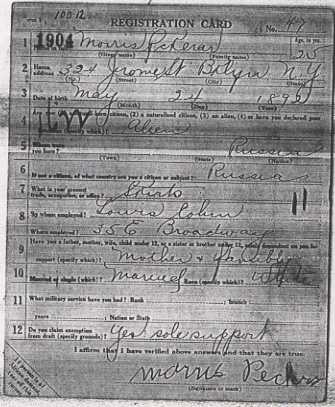 10012
REGISTRATION CARD
No. 47
1 1904 Morris Pickerar 25
(Given name) (Family name) Age, in yrs.
2 Home address 324 St Bklyn N.Y.
(No.) (Street) (City) (State)
3 Date of birth May 24 1892
(Month) (Day) (Year)
4 Are you (1) a natural born citizen, (2) a naturalized citizen, (3) an alien, (4) or have you declared your
(specify which)? Alien
5 Where were you born? Russia
(Town) (State) (Nation)
6 If not a citizen, of what country are you a citizen or subject? Russia
7 What is your present trade, occupation, or office? Shirts 11
8 By whom employed? Louis Cohen
Where employed? 356 Broadway
9 Have you a father, mother, wife, child under 12, or a sister or brother under 12, solely dependent on you for
support (specify which)? Mother &
10 Married or single (which)? Married Race (specify which)? White
11 What military service have you had? Rank ; branch
years ; Nation or State
12 Do you claim exemption from draft (specify grounds)? Yes sole support
I affirm that I have verified above answers and that they are true.
Morris
(Signature or mark)